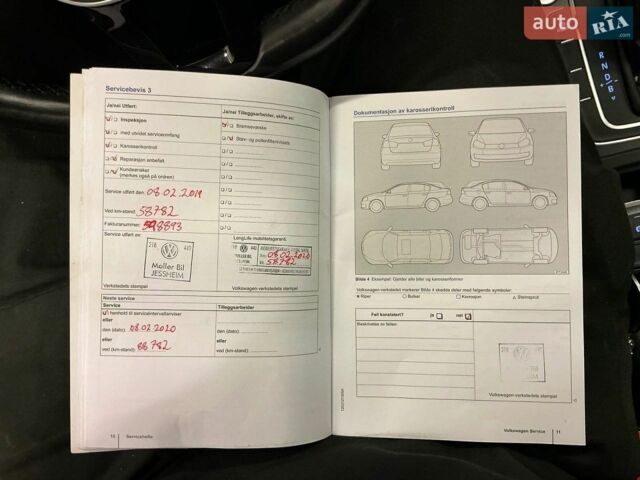 auto RIA.com
R
N
D
B
Servicebevis 3
Ja/nei Utført:
Ja/nei Tilleggsarbeider, skifte av:
Inspeksjon
Bremsevæske
med utvidet serviceomfang
Støv- og pollenfilterinnsats
Karosserikontroll
Reparasjon anbefalt
Kundeønsker
(merkes også på ordren)
Service utført den: 08.02.2019
Ved km-stand: 58782
Fakturanummer: 598893
Service utført av:
LongLife mobilitetsgaranti:
218 440
Møller Bil
JESSHEIM
08.02.2020
58782
Verkstedets stempel
Volkswagen-verkstedets stempel
Neste service
Service
Tilleggsarbeider
I henhold til serviceintervallanviser
eller
den (dato): 08.02.2020
den (dato):
eller
eller
ved (km-stand): 88782
ved (km-stand):
10 Servicehefte
Dokumentasjon av karosserikontroll
Bilde 4 Eksempel: Gjelder alle biler og karosseriformer
Volkswagen-verkstedet markerer Bilde 4 skadede deler med følgende symboler:
Riper
Bulker
Korrosjon
Steinsprut
Feil konstatert? ja nei
Beskrivelse av feilen:
Volkswagen-verkstedets stempel
Volkswagen Service 11